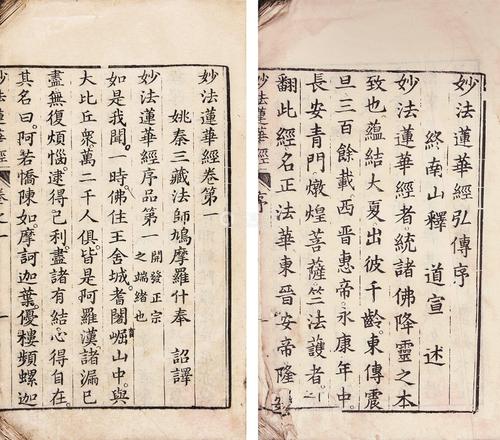 妙法蓮華經弘傳序
終南山釋 道宣 述
妙法蓮華經者。統諸佛降靈之本
致也。蘊結大夏出彼千齡。東傳震
旦三百餘載。西晉惠帝。永康年中。
長安青門。燉煌菩薩竺法護者。
翻此經名正法華東晉安帝隆
妙法蓮華經 序
妙法蓮華經卷第一
姚秦三藏法師鳩摩羅什奉 詔譯
妙法蓮華經序品第一 開發正宗
之端緒也
如是我聞。一時。佛住王舍城。耆闍崛山中。與
大比丘衆萬二千人俱。皆是阿羅漢。諸漏已
盡無復煩惱。逮得己利。盡諸有結。心得自在。
其名曰。阿若憍陳如。摩訶迦葉。優樓頻螺迦
妙法蓮華經 卷之一 一